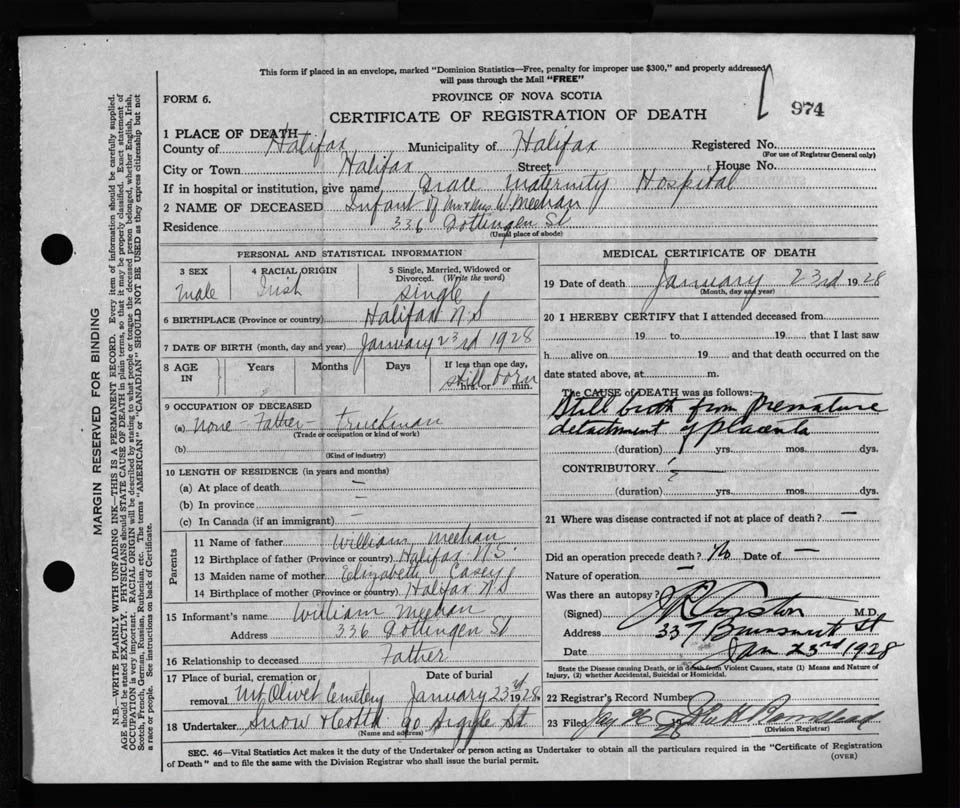 This form if placed in an envelope, marked "Dominion Statistics—Free, penalty for improper use $300," and properly addressed
will pass through the Mail "FREE"
FORM 6.
PROVINCE OF NOVA SCOTIA
CERTIFICATE OF REGISTRATION OF DEATH
974
1 PLACE OF DEATH
County of Halifax Municipality of Halifax Registered No.
(For use of Registrar General only)
City or Town Halifax Street House No.
If in hospital or institution, give name, Grace Maternity Hospital
2 NAME OF DECEASED Infant of Mr & Mrs W. Meehan
Residence 336 Gottingen St
(Usual place of abode)
PERSONAL AND STATISTICAL INFORMATION
3 SEX 4 RACIAL ORIGIN 5 Single, Married, Widowed or Divorced. (Write the word)
Male Irish Single
6 BIRTHPLACE (Province or country) Halifax N.S
7 DATE OF BIRTH (month, day and year) January 23rd 1928
8 AGE IN Years Months Days If less than one day, hrs. or min.
still born
9 OCCUPATION OF DECEASED
(a) None - Father - Truckman
(Trade or occupation or kind of work)
(b)
(Kind of industry)
10 LENGTH OF RESIDENCE (in years and months)
(a) At place of death —
(b) In province —
(c) In Canada (if an immigrant) —
Parents
11 Name of father William Meehan
12 Birthplace of father (Province or country) Halifax N.S.
13 Maiden name of mother Elizabeth Casey
14 Birthplace of mother (Province or country) Halifax N.S
15 Informant's name William Meehan
Address 336 Gottingen St
16 Relationship to deceased Father
17 Place of burial, cremation or removal Date of burial
Mt Olivet Cemetery January 23rd 1928
18 Undertaker Snow & Co Ltd 90 Argyle St
(Name and address)
MEDICAL CERTIFICATE OF DEATH
19 Date of death January 23rd 1928
(Month, day and year)
20 I HEREBY CERTIFY that I attended deceased from
19 to 19, that I last saw
h alive on 19 and that death occurred on the
date stated above, at m.
The CAUSE of DEATH was as follows:—
Still birth from premature
detachment of placenta
(duration) yrs. mos. dys.
CONTRIBUTORY
(duration) yrs. mos. dys.
21 Where was disease contracted if not at place of death? —
Did an operation precede death? No Date of —
Nature of operation —
Was there an autopsy?
(Signed) M.D.
Address 337 St
Date Jan 23rd 1928
State the Disease causing Death, or in death from Violent Causes, state (1) Means and Nature of
Injury, (2) whether Accidental, Suicidal or Homicidal.
22 Registrar's Record Number
23 Filed
(Division Registrar)
SEC. 46—Vital Statistics Act makes it the duty of the Undertaker or person acting as Undertaker to obtain all the particulars required in the "Certificate of Registration
of Death" and to file the same with the Division Registrar who shall issue the burial permit.
(OVER)
MARGIN RESERVED FOR BINDING
N.B.—WRITE PLAINLY WITH UNFADING INK—THIS IS A PERMANENT RECORD. Every item of information should be carefully supplied.
AGE should be stated EXACTLY. PHYSICIANS should STATE CAUSE OF DEATH in plain terms, so that it may be properly classified. Exact statement of
OCCUPATION is very important. RACIAL ORIGIN will be described by stating to what people or tongue the deceased person belonged, whether English, Irish,
Scotch, French, German, Russian, Ruthenian, etc. The terms "AMERICAN" or "CANADIAN" SHOULD NOT BE USED as they express citizenship but not
a race or people. See instructions on back of Certificate.